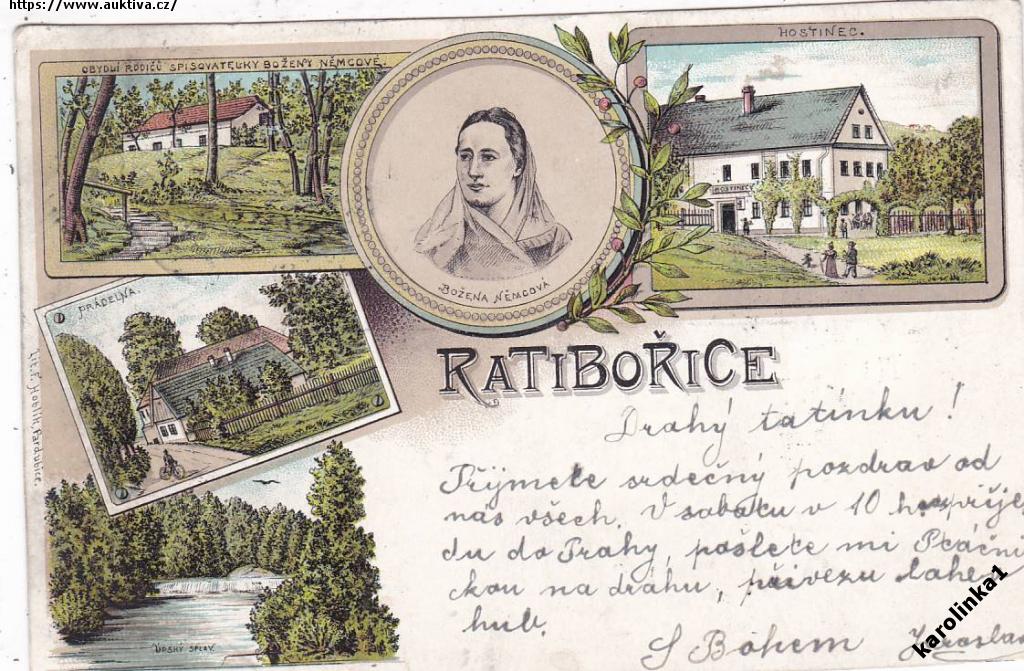 https://www.auktiva.cz/
OBYDLÍ RODIČŮ SPISOVATELKY BOŽENY NĚMCOVÉ.
HOSTINEC.
HOSTINEC
BOŽENA NĚMCOVÁ
PRÁDELNA.
RATIBOŘICE
Drahý tatínku!
Přijmete srdečný pozdrav od
nás všech. V sobotu v 10 h. přije
du do Prahy, pošlete mi Ptáčni
kou na dráhu, přivezu
hub.
S Bohem Jaroslav
ÚPSKÝ SPLAV.
Lit. F. Hoblík, Pardubice.
karolinka1